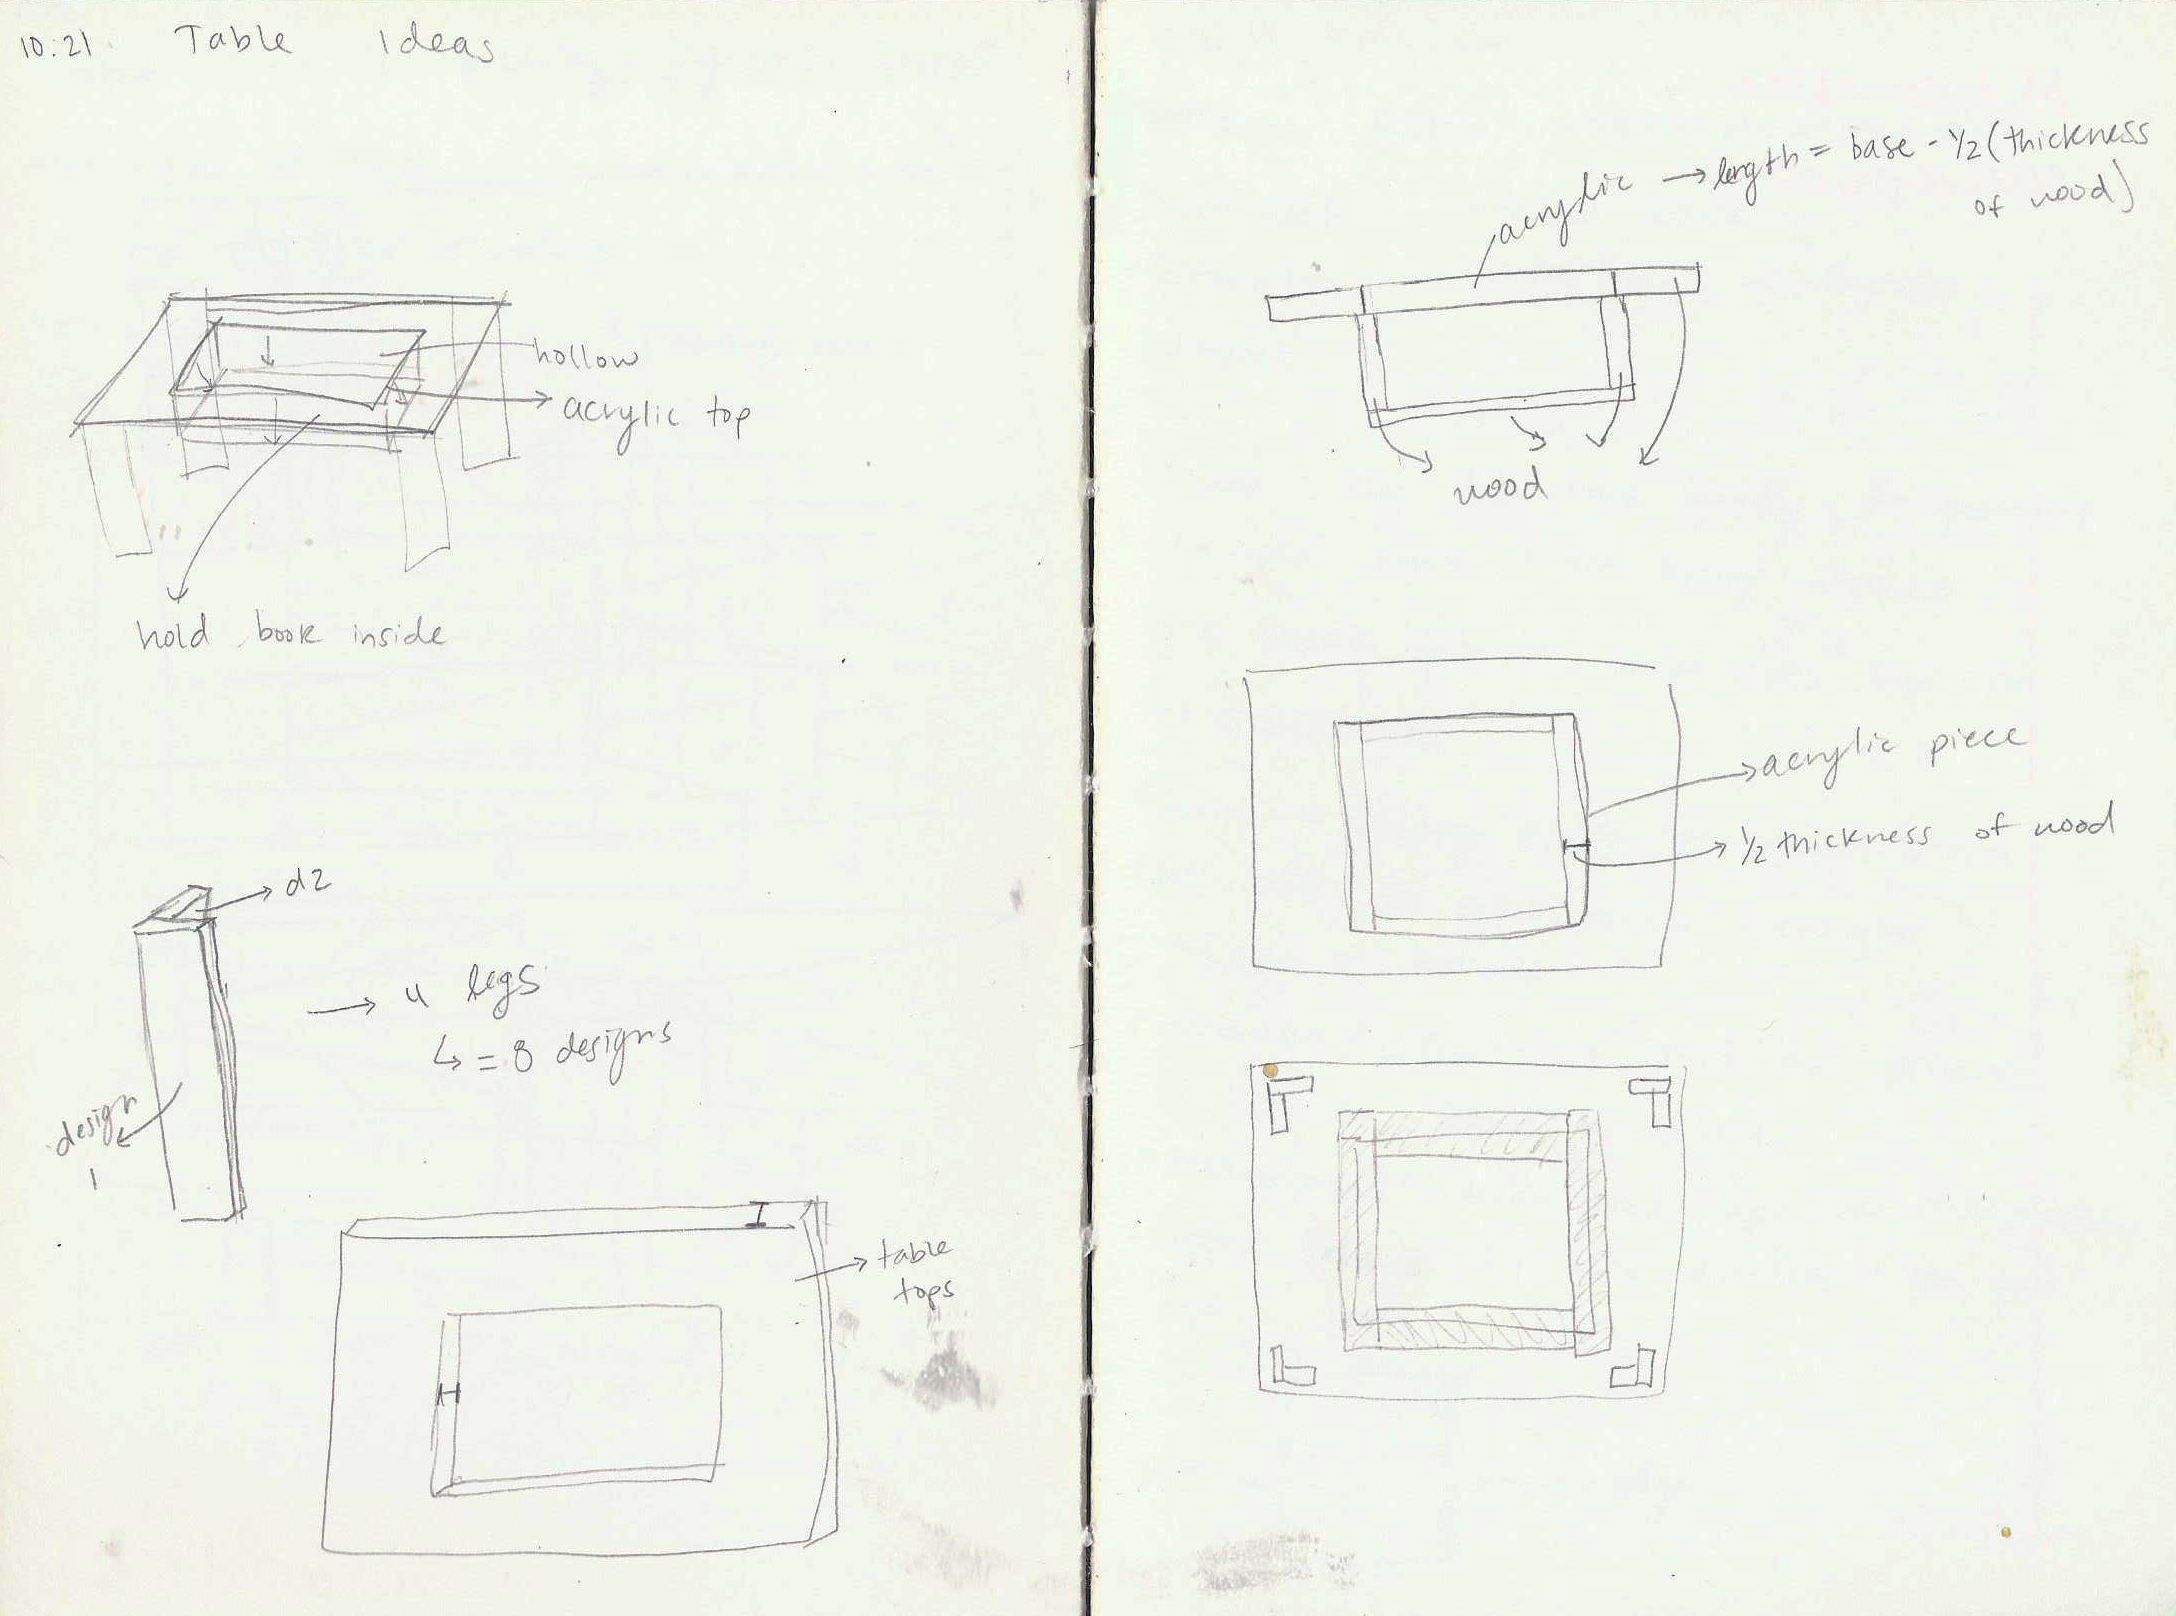 10:21 Table Ideas
hollow
acrylic top
hold book inside
d2
→ 4 legs
↳ = 8 designs
design
1
table
tops
acrylic → length = base - 1/2 (thickness
of wood)
wood
acrylic piece
1/2 thickness of wood